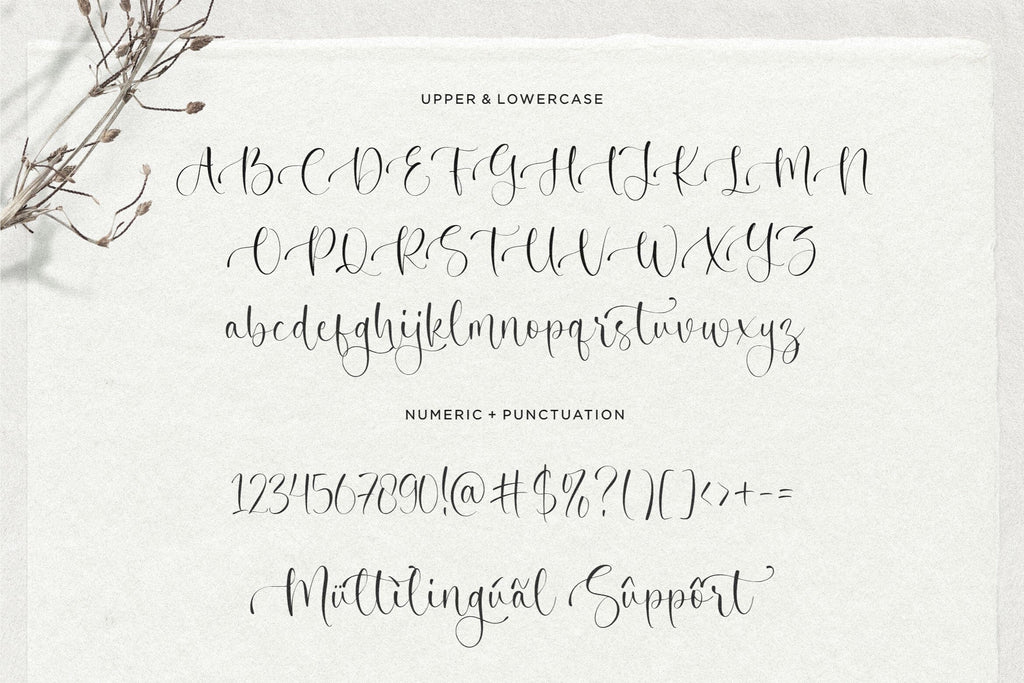 UPPER & LOWERCASE
ABCDEFGHIJKLMN
OPQRSTUVWXYZ
abcdefghijklmnopqrstuvwxyz
NUMERIC + PUNCTUATION
1234567890!@#$%?()[]<>+-=
Mültìlingúãl Sûppôrt